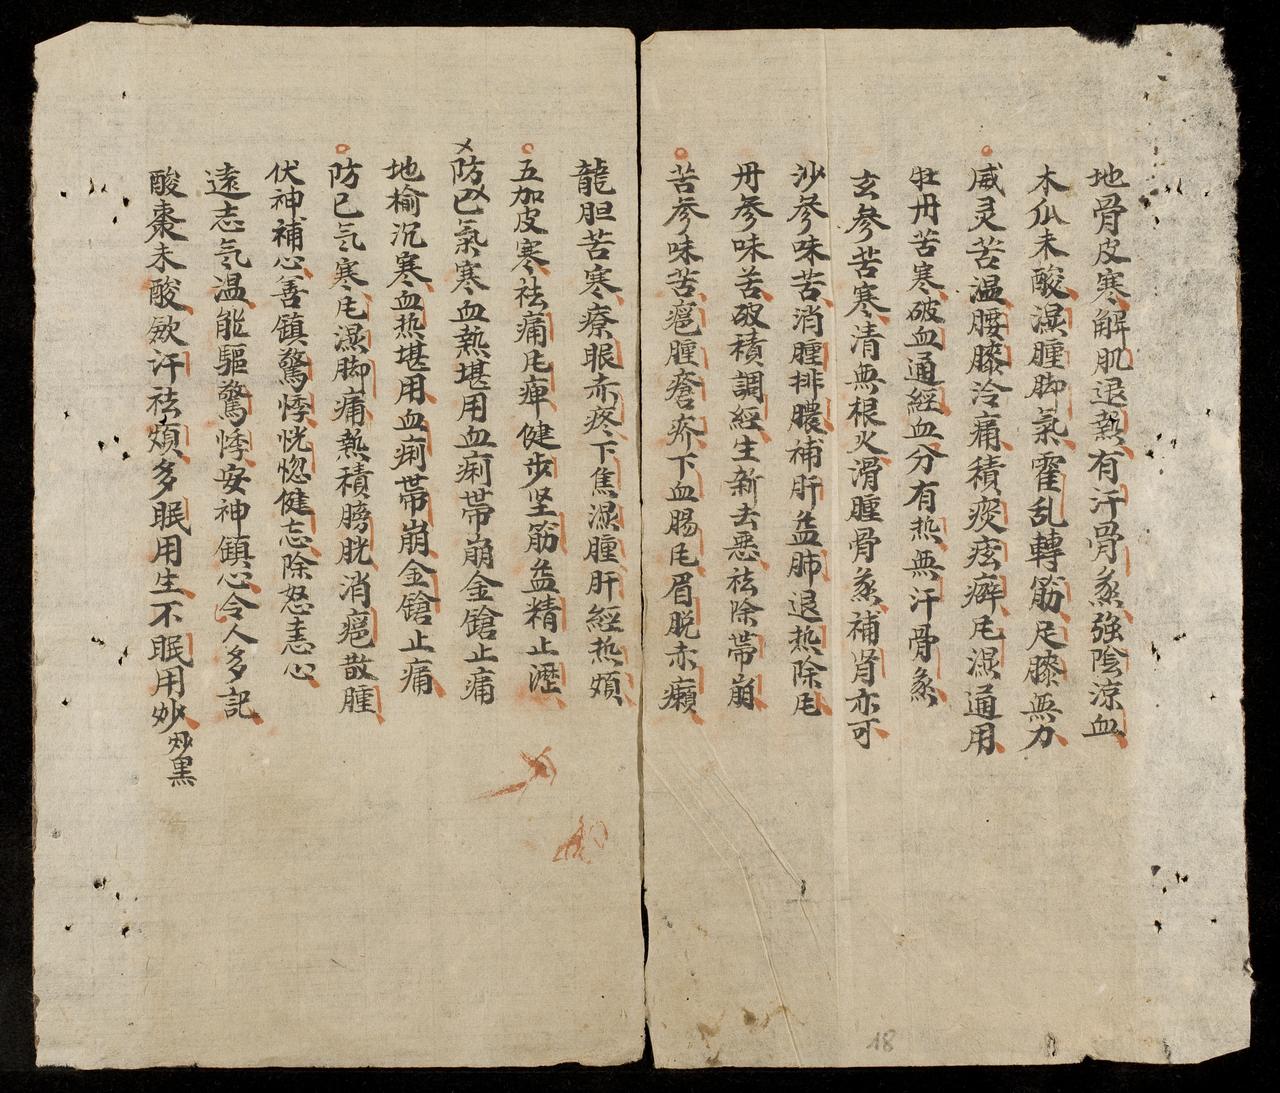 地骨皮寒解肌退熱有汗骨蒸強陰涼血
木瓜味酸濕腫脚氣霍乱轉筋足膝無力
威灵苦温腰膝冷痛積痰痃癖𠘨濕通用
牡丹苦寒破血通經血分有热無汗骨蒸
玄參苦寒清無根火消腫骨蒸補肾亦可
沙參味苦消腫排膿補肝益肺退热除𠘨
丹參味苦破積調經生新去悪祛除帯崩
苦參味苦瘡腫瘡疥下血腸𠘨眉脱赤癩
龍胆苦寒療眼赤疼下焦濕腫肝經热煩
五加皮寒祛痛𠘨痺健步坚筋益精止瀝
防己氣寒血熱堪用血痢帯崩金鎗止痛
地榆沉寒血热堪用血痢帯崩金鎗止痛
防己气寒𠘨濕脚痛熱積膀胱消瘡散腫
伏神補心善鎮驚悸恍惚健忘除怒恚心
遠志气温能驅驚悸安神鎮心令人多記
酸棗味酸歛汗祛煩多眠用生不眠用炒炒黒
18